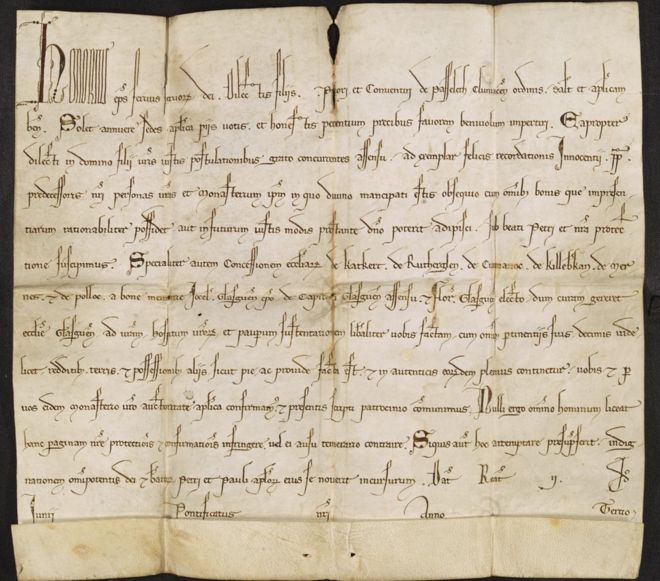 Honorius eps servus servor dei. Dilectis filiis. Priori et Conventui de Passeleth Cluniacen ordinis, salt et aplicam
ben. Solet annuere sedes aplica piis votis, et honestis petentium precibus favorem benivolum impertiri. Eapropter
dilecti in domino filii vris iustis postulationibus grato concurrentes assensu, ad exemplar felicis recordationis Innocentii. pp.
predecessoris nri personas vras et monasterium ipm in quo divino mancipati estis obsequio cum omnib bonis que inpresen
tiarum rationabiliter possidet aut infuturum iustis modis prestante dno poterit adipisci, sub beati Petri et nra protec
tione suscipimus. Specialiter autem Concessionem ecclar de Katkert. de Rutherglen. de de Killebkan. de Mer
nes. & de polloc. a bone memorie Jocel. Glasguen epo de Capituli Glasguen assensu & Flor. Glasguen electo dum curam gereret
ecclie Glasguen ad vram, hospitum viror et paupum sustentationem libaliter vobis factam, cum omib ptinentiis suis, decimis vide
licet, redditib, terris, & possessionib aliis sicut pie ac provide facta est & in autenticis eordem plenius continetur, vobis & p
vos eidem monasterio vro auctoritate aplica confirmam & presentis scripti patrocinio comunimus. Nulli ergo omnino hominum liceat
hanc paginam nre protectionis & confirmationis infringere, vel ei ausu temerario contraire. Siquis aut hoc attemptare presupserit, indig
nationem omipotentis dei & bator Petri et Pauli aplor eius se noverit incursurum. Dat Reat ij.
Junii Pontificatus nri Anno Tertio.